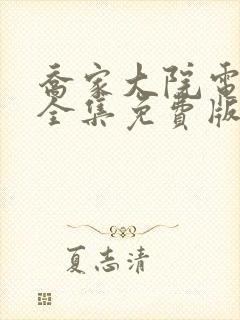 乔家大院電
全集免費版
夏志清